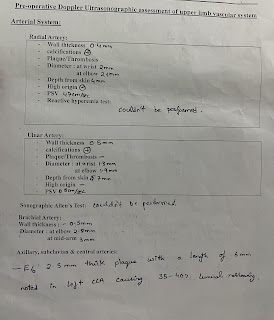 Pre-operative Doppler Ultrasonographic assessment of upper limb vascular system
Arterial System:
Radial Artery:
- Wall thickness 0.4mm
- calcifications ⊕
- Plaque/Thrombosis
- Diameter : at wrist 2mm
at elbow 2.1mm
- Depth from skin 4mm
- High origin ⊕
- PSV 47cm/sec
- Reactive hyperemia test:
couldn't be performed.
Ulnar Artery:
- Wall thickness 0.5mm
- calcifications ⊕
- Plaque/Thrombosis –
- Diameter : at wrist 1.3mm
at elbow 1.9mm
- Depth from skin 7mm
- High origin –
- PSV
Sonographic Allen's Test: Couldn't be performed
Brachial Artery:
Wall thickness : - 0.5mm
-Diameter : at elbow 2.8mm
at mid-arm 3mm
Axillary, subclavian & central arteries:
2.3mm thick plaque with a length of 6mm
noted in left CCA causing 35-40% luminal narrowing.